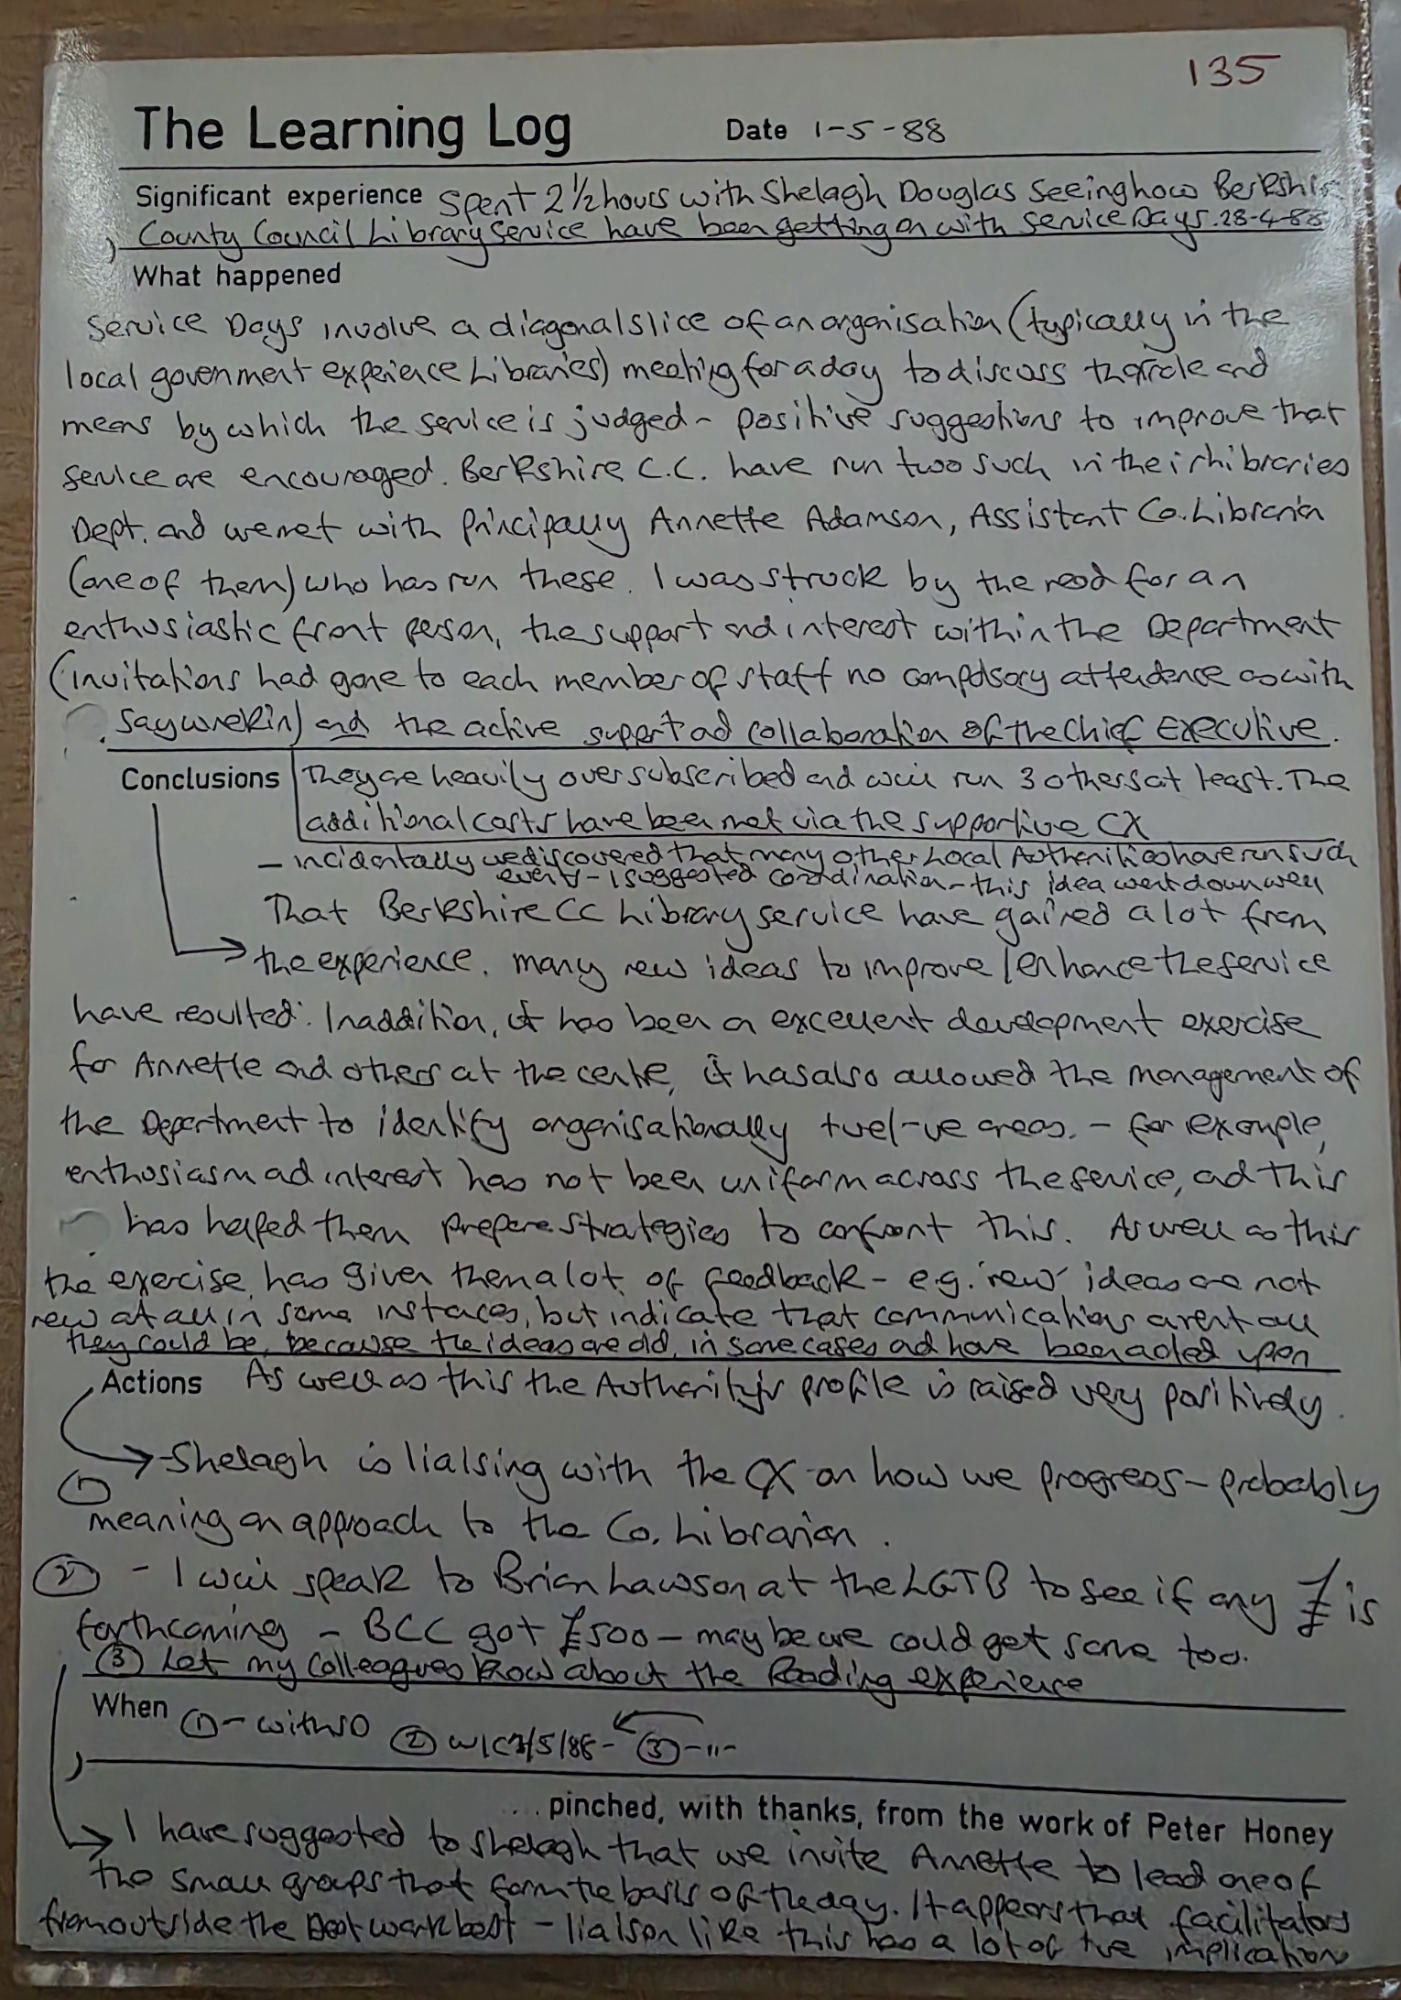 135
The Learning Log Date 1-5-88
Significant experience Spent 2½ hours with Shelagh Douglas seeing how Berkshire
County Council Library Service have been getting on with Service Days. 28-4-88
What happened
Service Days involve a diagonal slice of an organisation (typically in the
local govenment experience Libraries) meeting for a day to discuss the role and
means by which the service is judged - positive suggestions to improve that
service are encouraged. Berkshire C.C. have run two such in their Libraries
Dept. and we met with principally Annette Adamson, Assistant Co. Librarian
(one of them) who has run these. I was struck by the need for an
enthusiastic front person, the support and interest within the Department
(invitations had gone to each member of staff no compulsory attendence as with
say Wrekin) and the active support ad collaboration of the Chief Executive.
Conclusions They are heavily over subscribed and will run 3 others at least. The
additional costs have been met via the supportive CX
- incidentally we discovered that many other Local Authorities have run such
events - I suggested coordination - this idea went down well
That Berkshire CC Library service have gained a lot from
the experience. Many new ideas to improve / enhance the service
have resulted. In addition, it has been an excellent development exercise
for Annette and others at the centre, it has also allowed the management of
the Department to identify organisationally +ve/-ve areas. - for example,
enthusiasm ad interest has not been uniform across the service, ad this
has helped them prepare strategies to confront this. As well as this
the exercise has given them a lot of feedback - e.g. 'new' ideas are not
new at all in some instaces, but indicate that communications arent all
they could be, because the ideas are old, in some cases ad have been acted upon
Actions As well as this the Authority's profile is raised very positively.
① Shelagh is liaising with the CX on how we progress - probably
meaning an approach to the Co. Librarian.
② - I will speak to Brian Lawson at the LGTB to see if any £ is
forthcoming - BCC got £500 - maybe we could get some too.
③ Let my colleagues know about the Reading experience
When ① - with SD ② W/C 3/5/88 - ③ - " -
...pinched, with thanks, from the work of Peter Honey
I have suggested to Shelagh that we invite Annette to lead one of
the small groups that form the basis of the day. It appears that facilitators
from outside the Dept work best - liaison like this has a lot of +ve implication